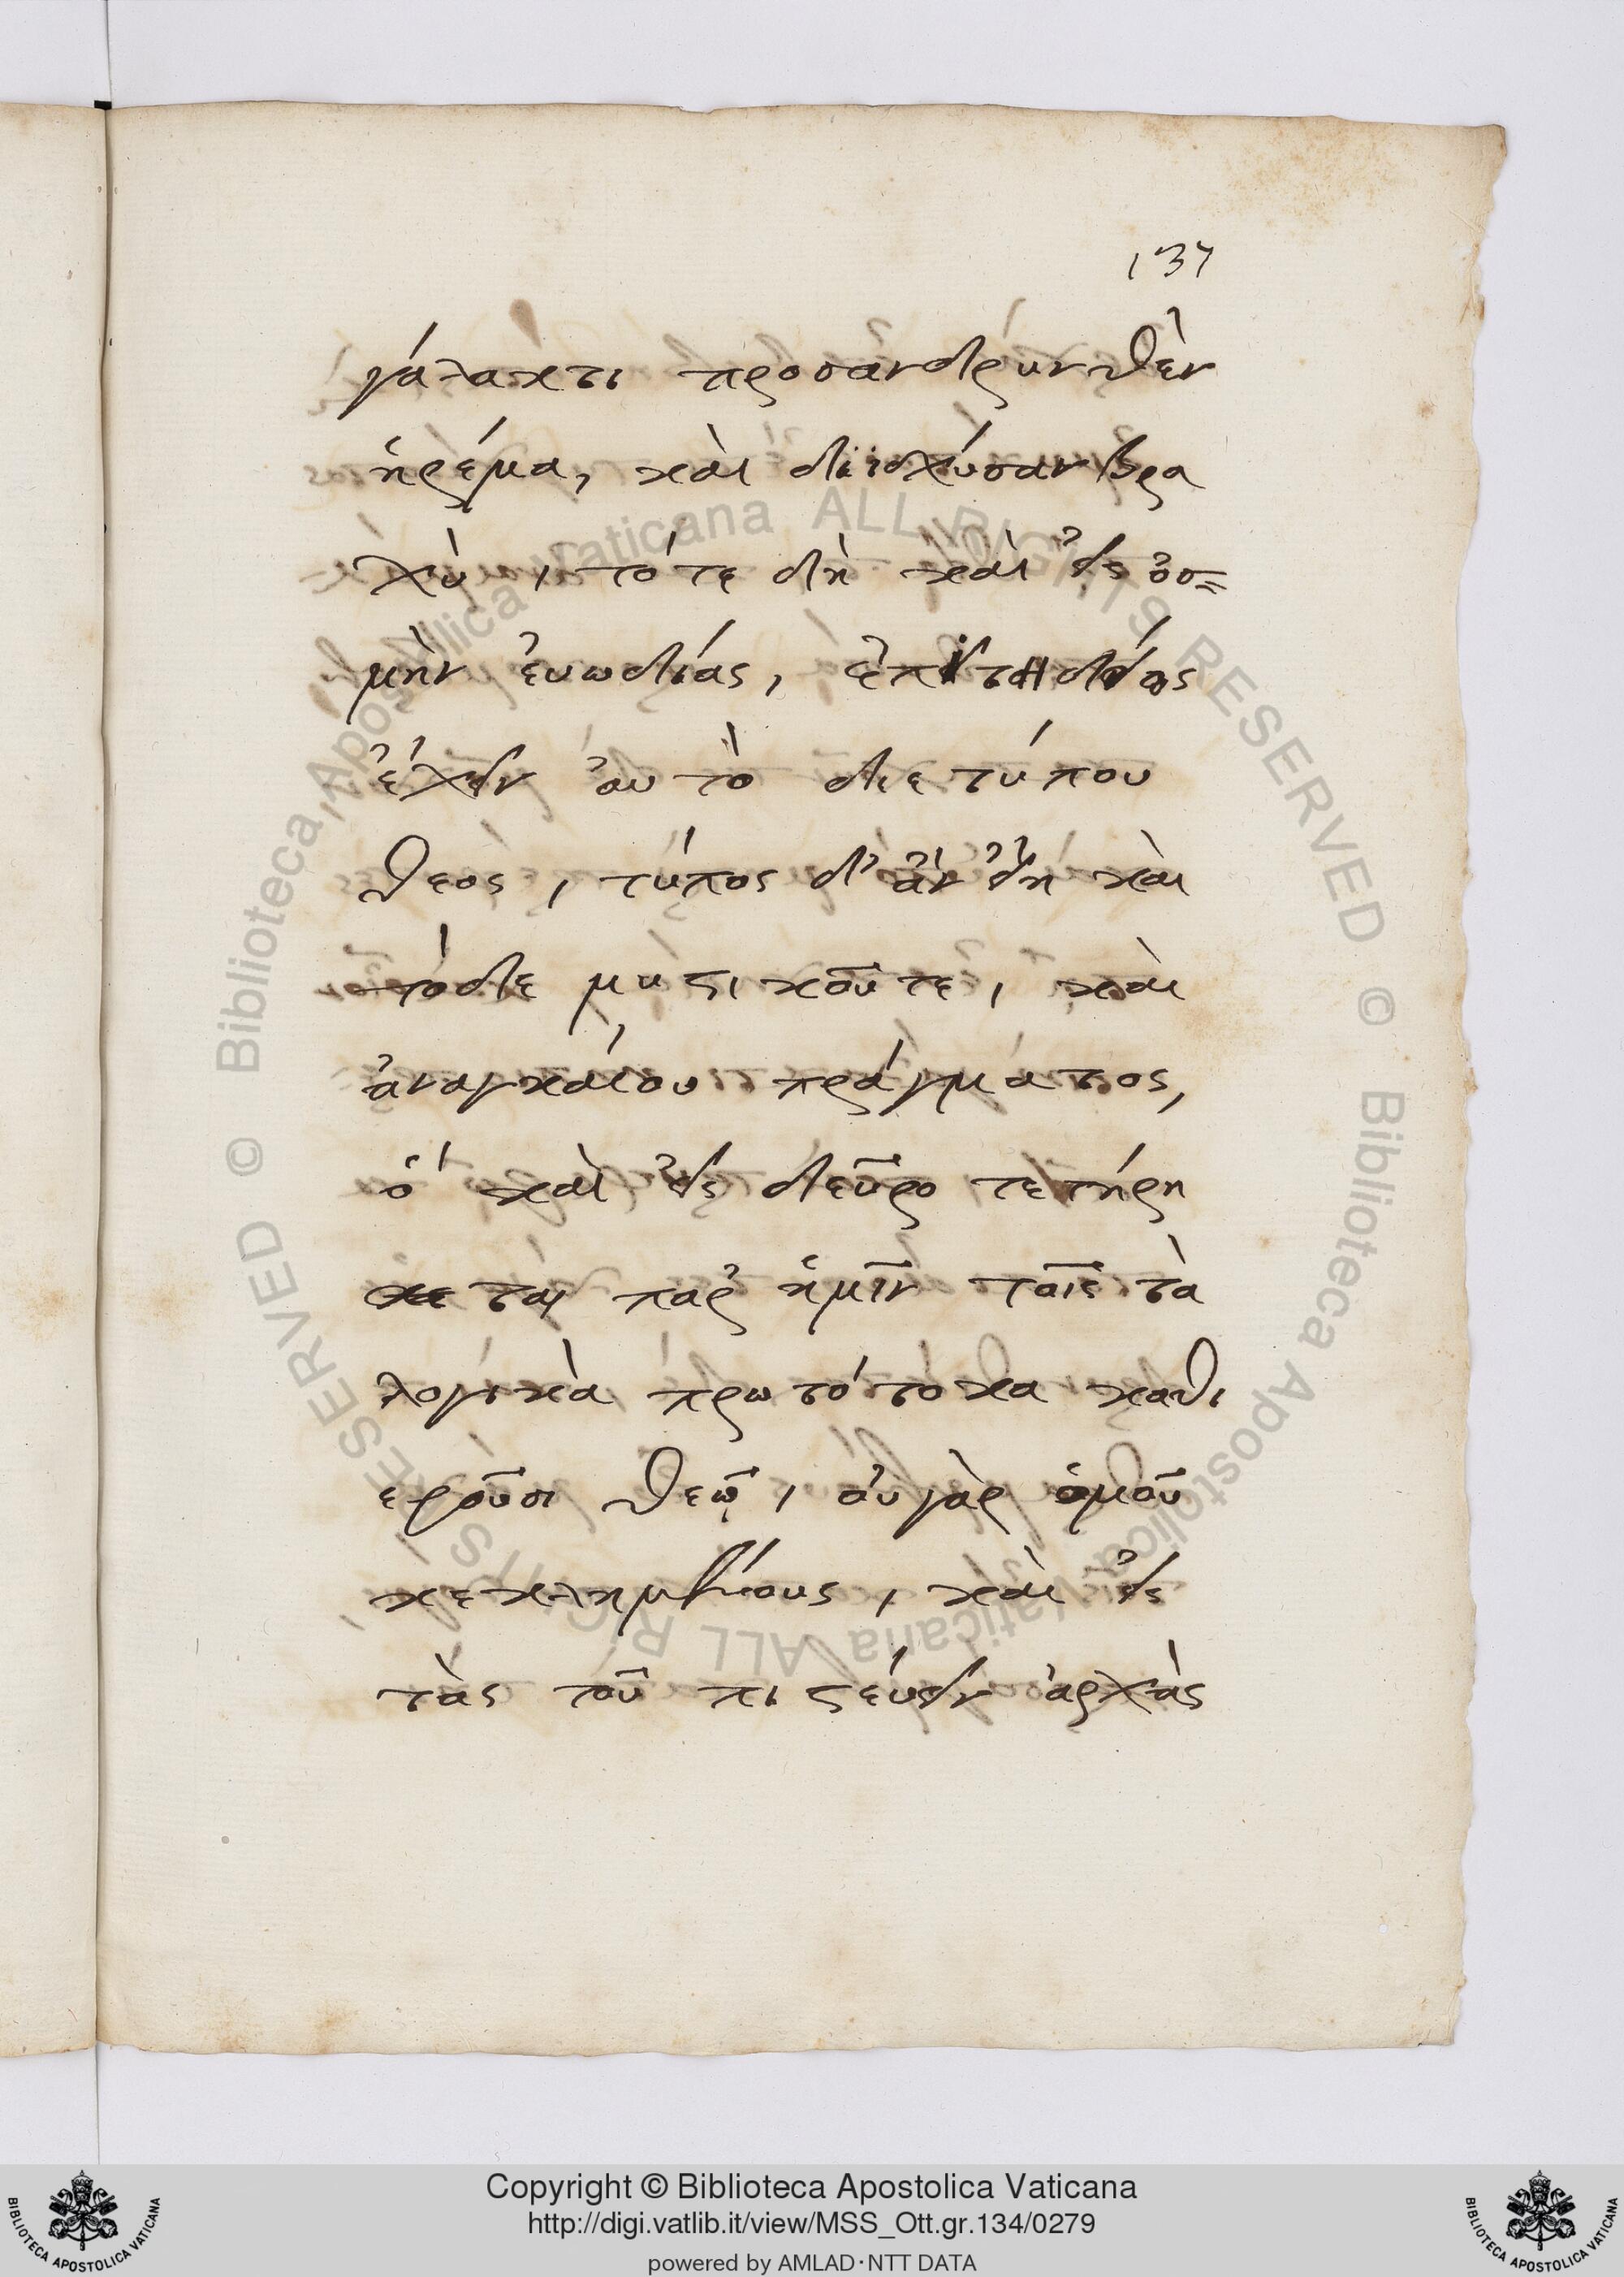 137
γάλακτι προσανδρυνθὲν
ἠρέμα, καὶ διϊσχύσαν βρα
χὺ, τότε δὴ καὶ εἰς ὀσ=
μὴν ἐυωδίας, ἐπιτηδείως
ἔχειν ἀυτὸ διετύπου
θεος, τύπος δ' ἂν εἴη καὶ
τόδε μυστικοῦ τε, καὶ
ἀναγκαίου πράγματος,
ὃ καὶ εἰς δεῦρο τετήρη
ται παρ' ἡμῖν τοῖς τὰ
λογικὰ πρωτότοκα καθι
εροῦσι θεῷ, ὀυ γὰρ ὁμοῦ
κεκλημένους, καὶ εἰς
τὰς τοῦ πιστεύειν ἀρχὰς
© Biblioteca Apostolica Vaticana ALL RIGHTS RESERVED © Biblioteca Apostolica Vaticana ALL RIGHTS RESERVED
Copyright © Biblioteca Apostolica Vaticana
http://digi.vatlib.it/view/MSS_Ott.gr.134/0279
powered by AMLAD·NTT DATA
BIBLIOTECA APOSTOLICA VATICANA
BIBLIOTECA APOSTOLICA VATICANA